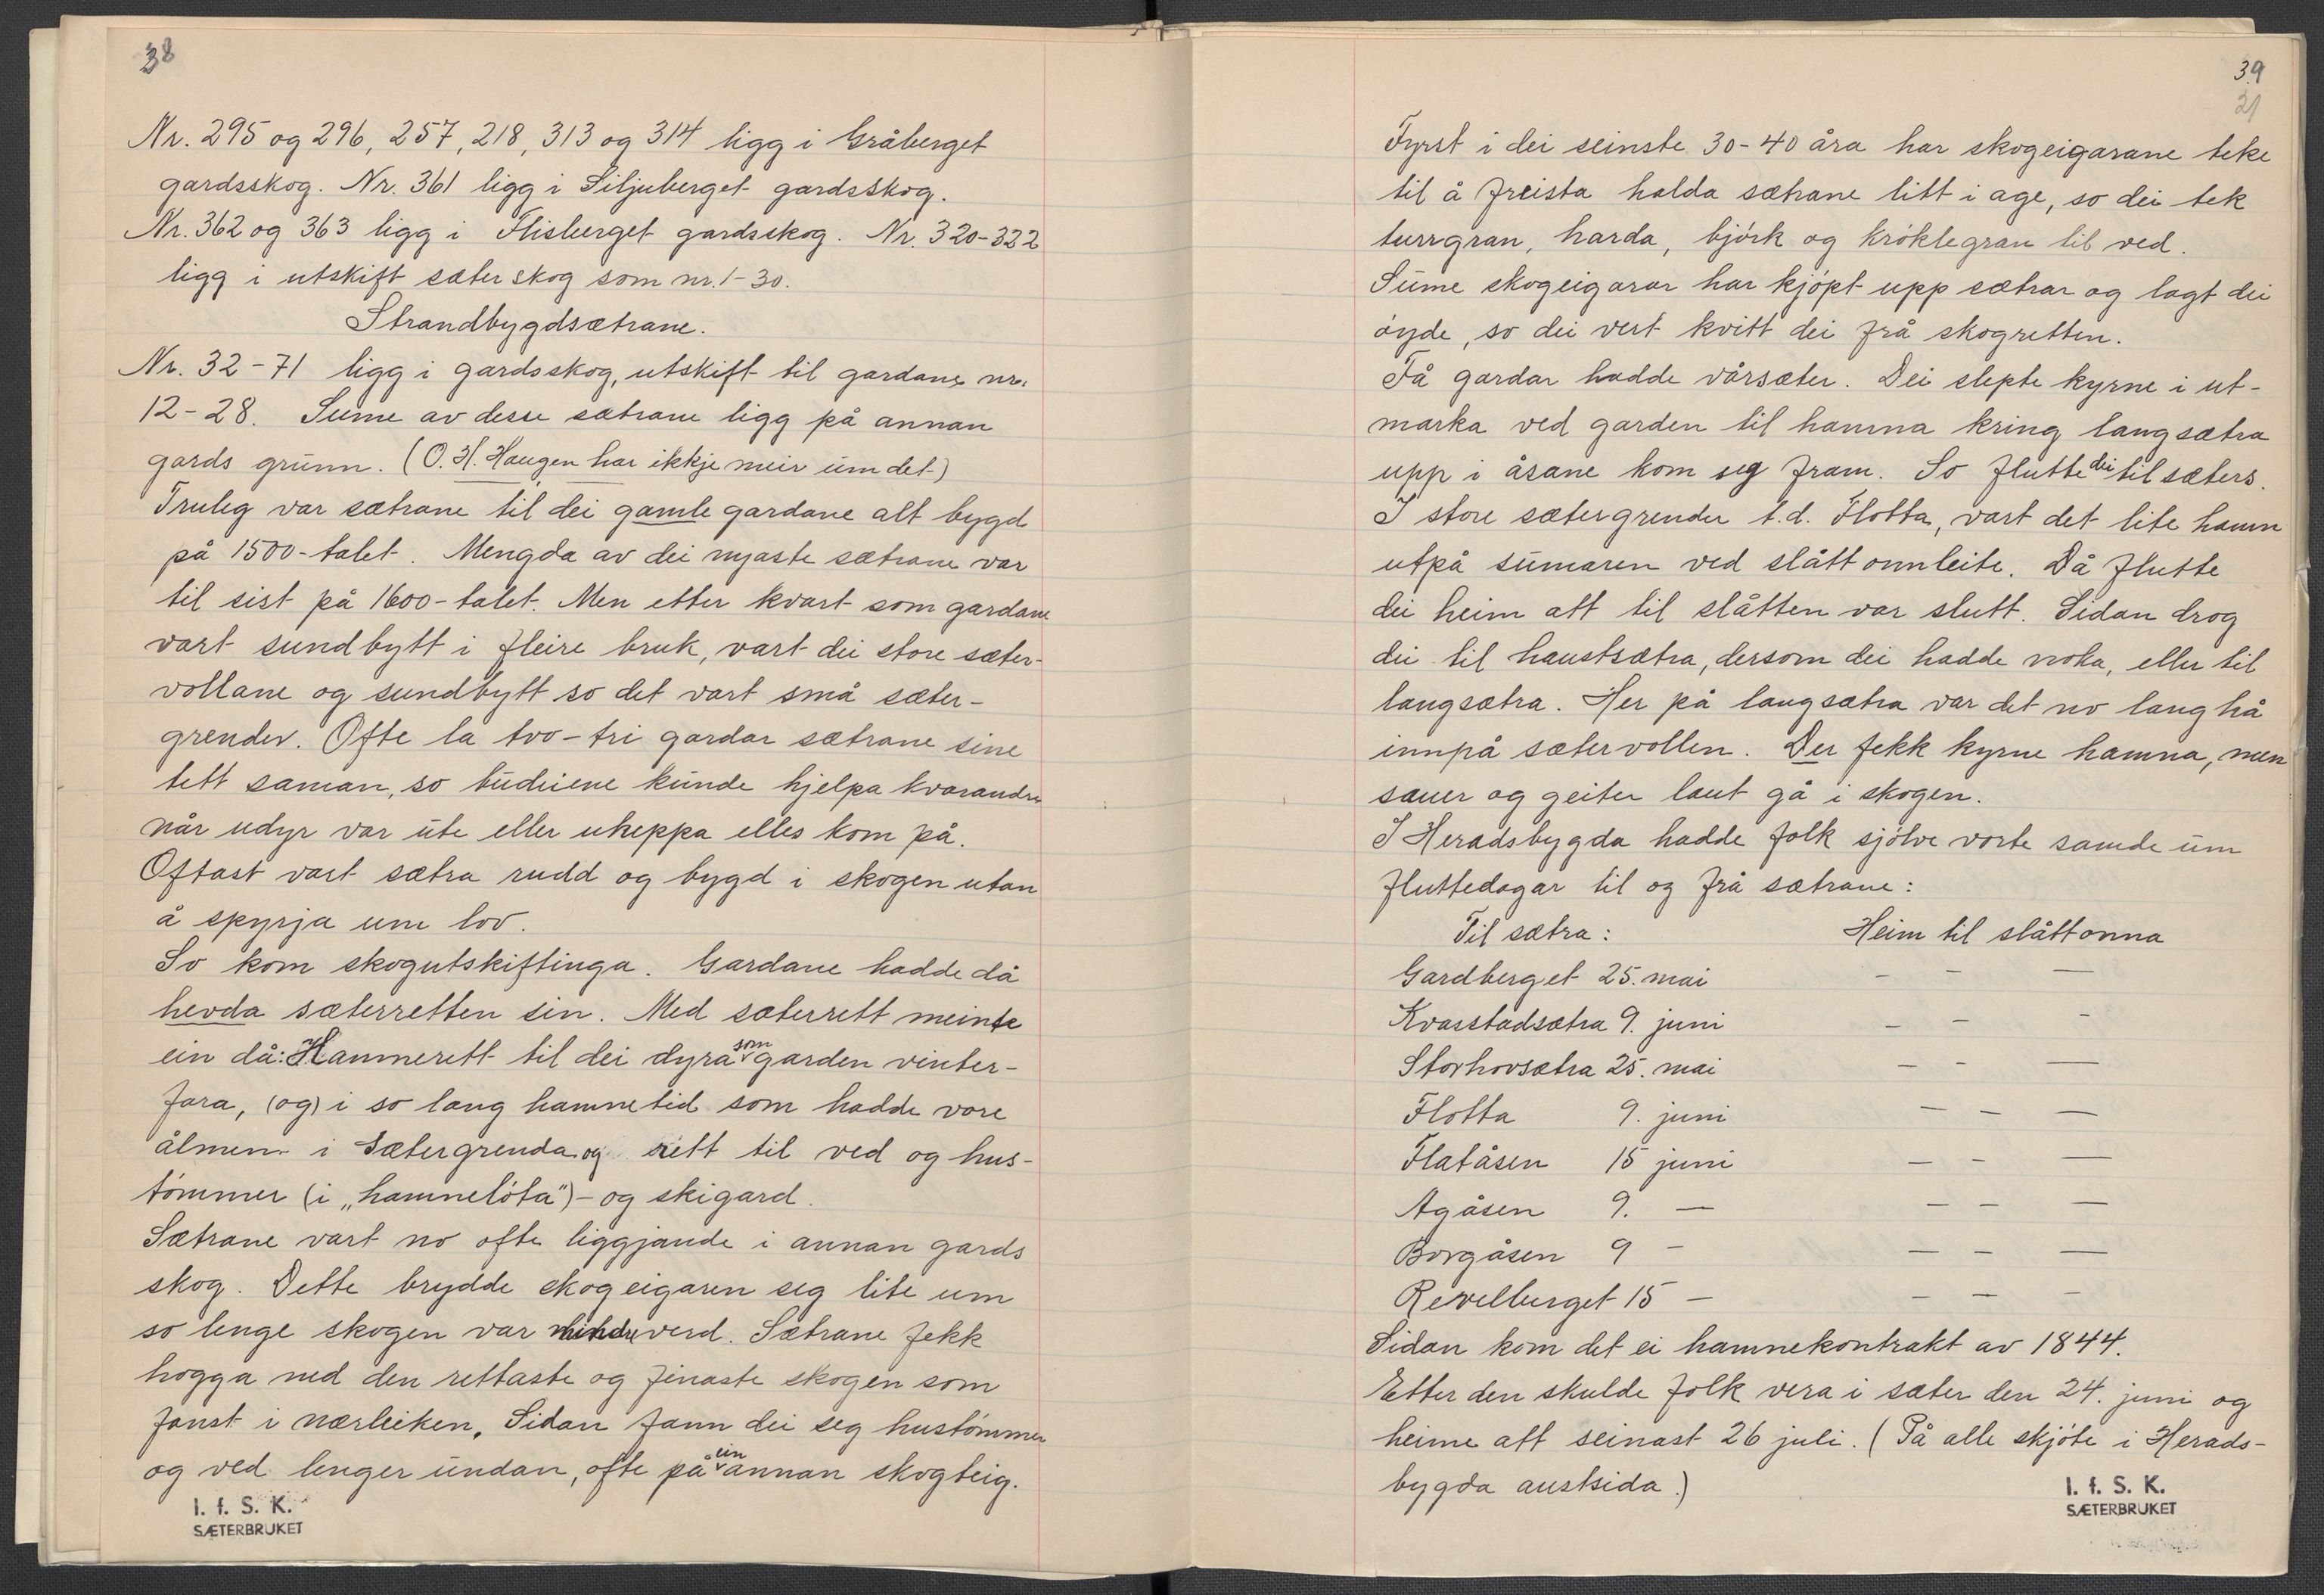 38
Nr. 295 og 296, 257, 218, 313 og 314 ligg i Gråberget
gardsskog. Nr. 361 ligg i Siljuberget gardsskog.
Nr. 362 og 363 ligg i Flisberget gardsskog. Nr. 320-322
ligg i utskift sæterskog som nr. 1-30.
Strandbygdsætrane.
Nr. 32-71 ligg i gardsskog, utskift til gardane nr.
12-28. Sume av desse sætrane ligg på annan
gards grunn. (O. H. Haugen har ikkje meir um det)
Truleg var sætrane til dei gamle gardane alt bygd
på 1500-talet. Mengda av dei nyaste sætrane var
til sist på 1600-talet. Men etter kvart som gardane
vart sundbytt i fleire bruk, vart dei store sæter-
vollane og sundbytt so det vart små sæter-
grender. Ofte la tvo-tri gardar sætrane sine
tett saman, so budeiene kunde hjelpa kvarandre
når udyr var ute eller uheppa elles kom på.
Oftast vart sætra rudd og bygd i skogen utan
å spyrja um lov.
So kom skogutskiftinga. Gardane hadde då
hevda sæterretten sin. Med sæterrett meinte
ein då: Hamnerett til dei dyra som garden vinter-
fora, (og) i so lang hamnetid som hadde vore
ålmen i sætergrenda og rett til ved og hus-
tømmer (i „hamneløta") - og skigard.
Sætrane vart no ofte liggjande i annan gards
skog. Dette brydde skogeigaren seg lite um
so lenge skogen var mindre verd. Sætrane fekk
hogga ned den rettaste og finaste skogen som
fanst i nærleiken. Sidan fann dei seg hustømmer
og ved lenger undan, ofte på ein annan skogteig.
I. f. S. K.
SÆTERBRUKET
39
21
Fyrst i dei seinste 30-40 åra har skogeigarane teke
til å freista halda sætrane litt i age, so dei tek
turrgran, harda, bjørk og krøklegran til ved.
Sume skogeigarar har kjøpt upp sætrar og lagt dei
øyde, so dei vert kvitt dei frå skogretten.
Få gardar hadde vårsæter. Dei slepte kyrne i ut-
marka ved garden til hamna kring langsætra
upp i åsane kom seg fram. So flutte dei til sæters.
I store sætergrender t.d. Flotta, vart det lite hamn
utpå sumaren ved slåttonnleite. Då flutte
dei heim att til slåtten var slutt. Sidan drog
dei til haustsætra, dersom dei hadde noka, eller til
langsætra. Her på langsætra var det no lang hå
innpå sætervollen. Der fekk kyrne hamna, men
sauer og geiter laut gå i skogen.
I Heradsbygda hadde folk sjølve vorte samde um
fluttedagar til og frå sætrane:
Til sætra: Heim til slåttonna
Gardberget 25. mai - - —
Kvasstadsætra 9. juni - - -
Storhovsætra 25. mai - - —
Flotta 9. juni - - —
Flatåsen 15 juni - - —
Agåsen 9. — - - —
Borgåsen 9 - — - —
Revelberget 15 - - - -
Sidan kom det ei hamnekontrakt av 1844.
Etter den skulde folk vera i sæter den 24. juni og
heime att seinast 26 juli. (På alle skjøte i Herads-
bygda austsida.)
I. f. S. K.
SÆTERBRUKET